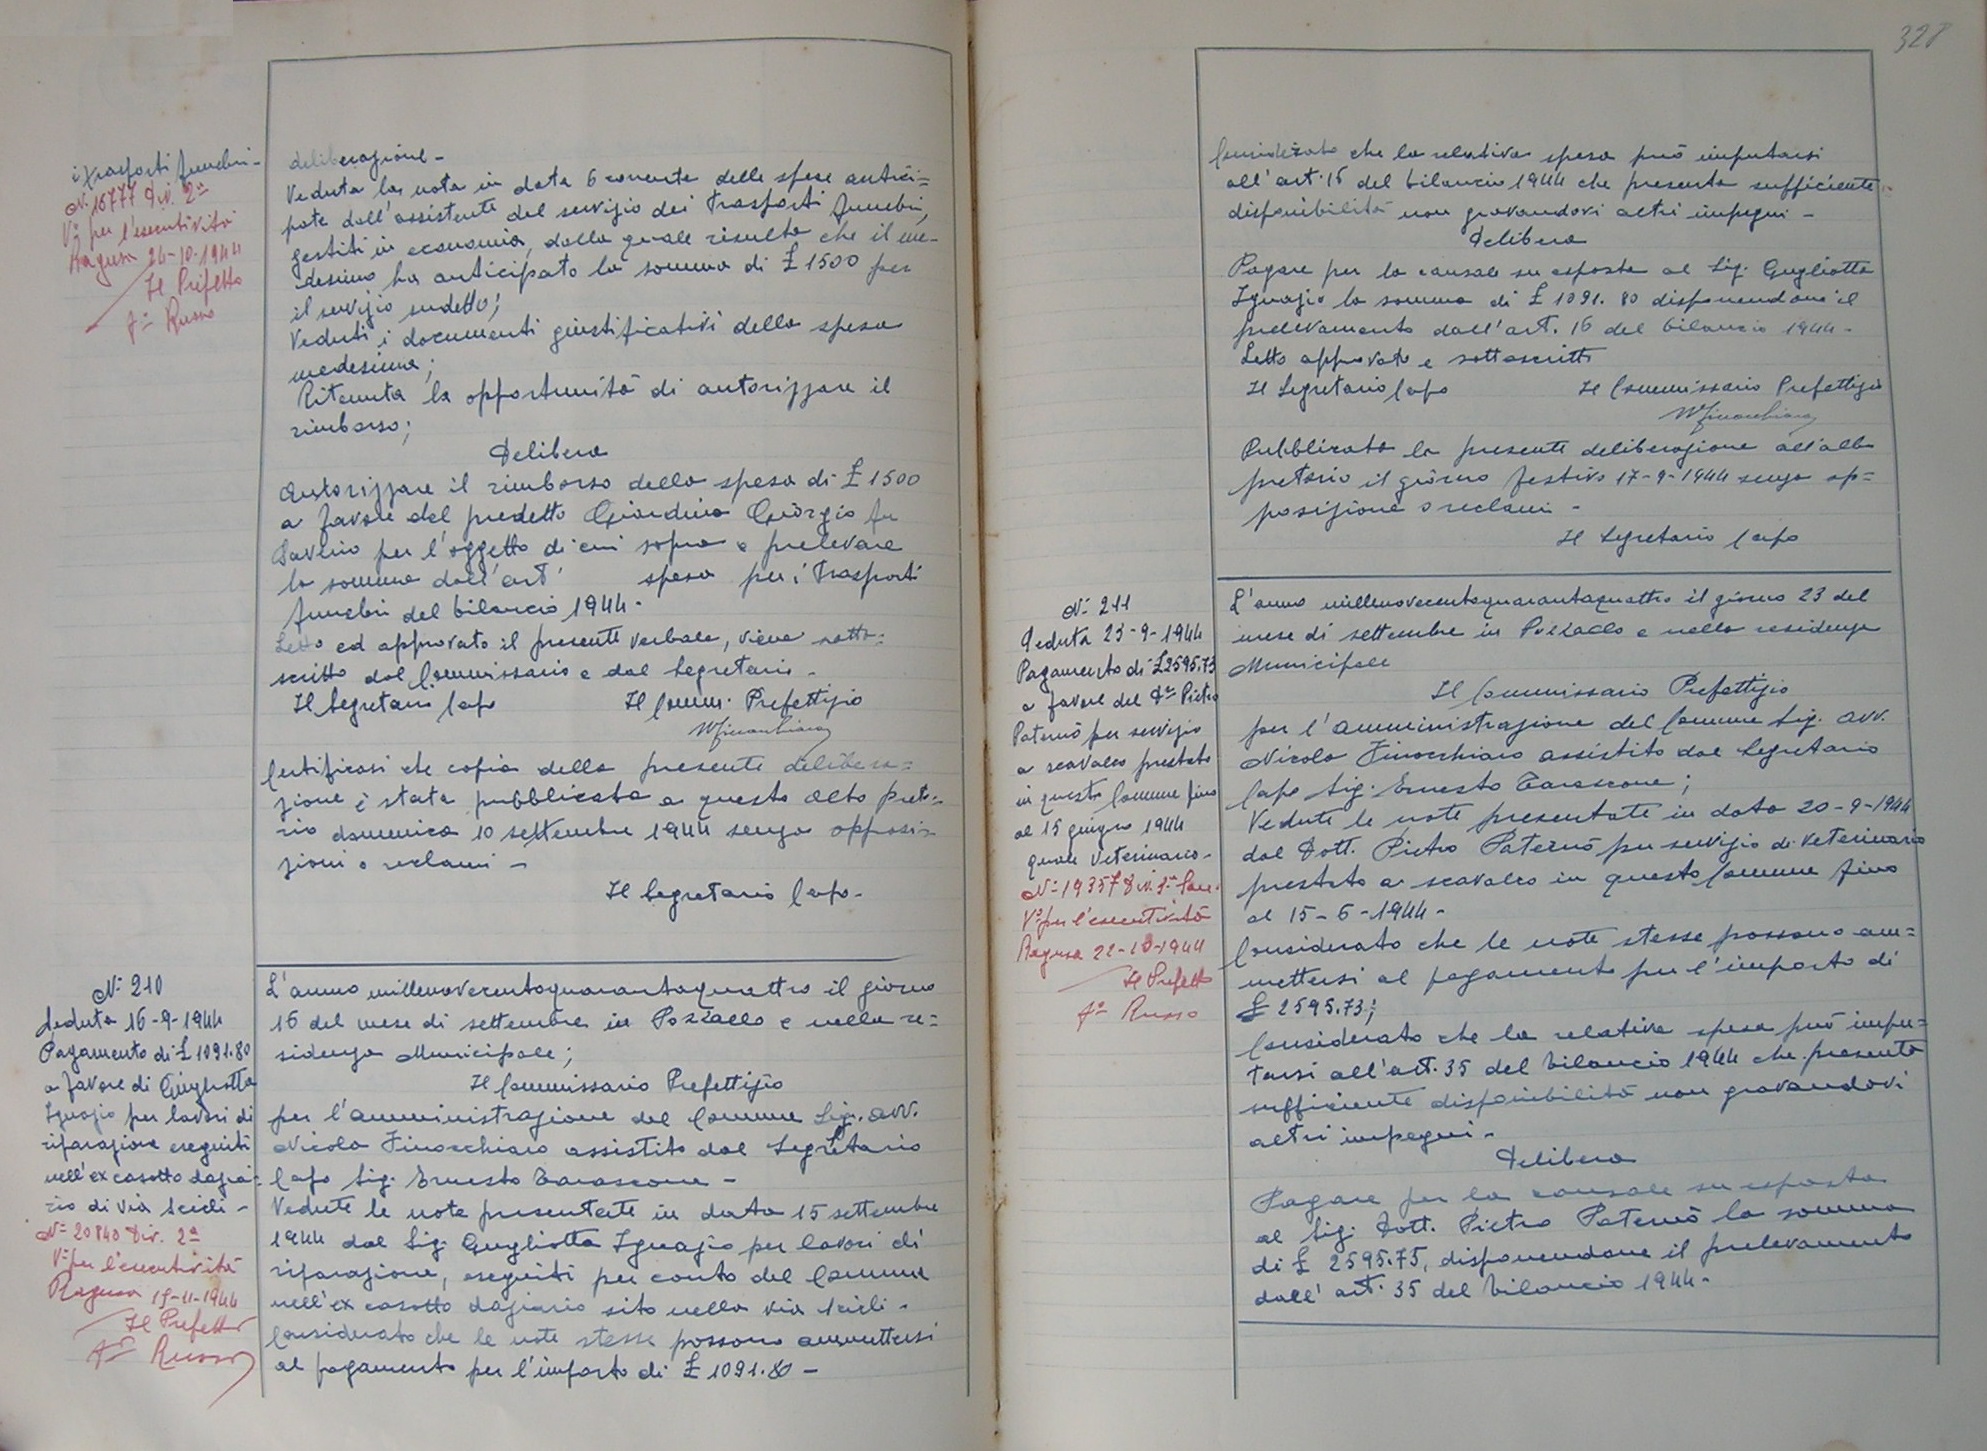 i trasporti funebri -
N. 16777 Div. 2ª
Vº per l'esecutività
Ragusa 24-10-1944
Il Prefetto
Fº Russo
deliberazione -
Veduta la nota in data 6 corrente delle spese antici=
pate dall'assistente del servizio dei Trasporti funebri,
gestiti in economia, dalla quale risulta che il me-
desimo ha anticipato la somma di £ 1500 per
il servizio sudetto;
Veduti i documenti giustificativi della spesa
medesima;
Ritenuta la opportunità di autorizzare il
rimborso;
Delibera
Autorizzare il rimborso della spesa di £ 1500
a favore del predetto Giardina Giorgio fu
Saverio per l'oggetto di cui sopra e prelevare
la somma dall'art. spesa per i Trasporti
funebri del bilancio 1944.
Letto ed approvato il presente verbale, viene sotto=
scritto dal Commissario e dal Segretario -
Il Segretario Capo Il Comm. Prefettizio
NFinocchiaro
Certificasi che copia della presente delibera=
zione è stata pubblicata a questo Albo Preto=
rio domenica 10 settembre 1944 senza opposi=
zioni o reclami -
Il Segretario Capo -
Nº 210
Seduta 16-9-1944
Pagamento di £ 1091.80
a favore di Gugliotta
Ignazio per lavori di
riparazione eseguiti
nell'ex casotto dazia-
rio di via Scicli -
Nº 20840 Div. 2ª
Vº per l'esecutività
Ragusa 15-11-1944
Il Prefetto
Fº Russo
L'anno millenovecentoquarantaquattro il giorno
16 del mese di settembre in Pozzallo e nella re=
sidenza Municipale;
Il Commissario Prefettizio
per l'amministrazione del Comune Sig. avv.
Nicola Finocchiaro assistito dal Segretario
Capo Sig. Ernesto Tarascone -
Vedute le note presentate in data 15 settembre
1944 dal Sig. Gugliotta Ignazio per lavori di
riparazione, eseguiti per conto del Comune
nell'ex casotto daziario sito nella via Scicli -
Considerato che le note stesse possono ammettersi
al pagamento per l'importo di £ 1091.80 -
328
Considerato che la relativa spesa può imputarsi
all'art. 16 del bilancio 1944 che presenta sufficiente
disponibilità non gravandovi altri impegni -
Delibera
Pagare per la causale su esposta al Sig. Gugliotta
Ignazio la somma di £ 1091.80 disponendone il
prelevamento dall'art. 16 del bilancio 1944 -
Letto approvato e sottoscritto
Il Segretario Capo Il Commissario Prefettizio
NFinocchiaro
Pubblicata la presente deliberazione all'albo
pretorio il giorno festivo 17-9-1944 senza op=
posizione o reclami -
Il Segretario Capo
Nº 211
Seduta 23-9-1944
Pagamento di £2595.73
a favore del Dr Pietro
Paternò per servizio
a scavalco prestato
in questo Comune fino
al 15 giugno 1944
quale Veterinario -
Nº 19357 Div.
Vº per l'esecutività
Ragusa 22-10-1944
Il Prefetto
Fº Russo
L'anno millenovecentoquarantaquattro il giorno 23 del
mese di settembre in Pozzallo e nella residenza
Municipale
Il Commissario Prefettizio
per l'amministrazione del Comune Sig. avv.
Nicola Finocchiaro assistito dal Segretario
Capo Sig. Ernesto Tarascone;
Vedute le note presentate in data 20-9-1944
dal Dott. Pietro Paternò per servizio di Veterinario
prestato a scavalco in questo Comune fino
al 15-6-1944 -
Considerato che le note stesse possono am=
mettersi al pagamento per l'importo di
£ 2595.73;
Considerato che la relativa spesa può impu=
tarsi all'art. 35 del bilancio 1944 che presenta
sufficiente disponibilità non gravandovi
altri impegni -
Delibera
Pagare per la causale su esposta
al Sig. Dott. Pietro Paternò la somma
di £ 2595.75, disponendone il prelevamento
dall'art. 35 del bilancio 1944 -